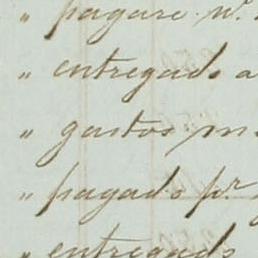 " pagaré nº
" entregado a
" gastos m
" pagado pr
" entregado